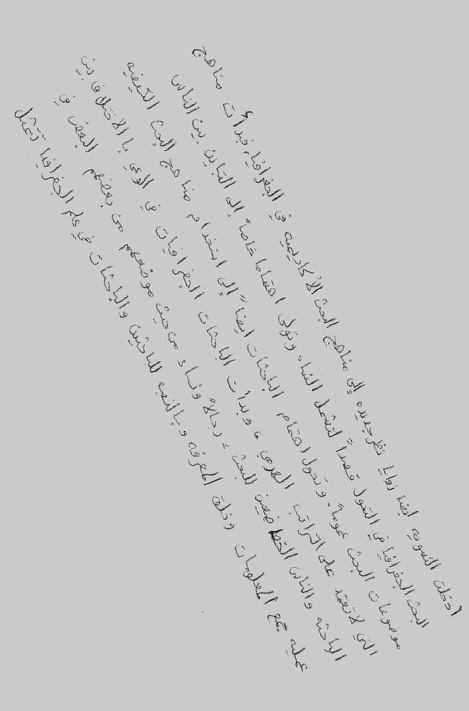 أدخلت النسويه ايضا زوايا نظر جديده إلى مناهج البحث الأكاديميه في الجغرافيا، فبدأت مناهج
البحث الجغرافيا في التحول قصداً لتشمل النساء وتولى اهتماما خاصاً إلى التباين بين الناس
موضوعات البحث عموماً. وتحول اهتمام الباحثات ايضاً إلى استخدام مناهج البحث الكيفيه
التي لاتعتمد على التراتب الهرمي، وبدأت الباحثات الجغرافيات في الوعي بالاختلاف بين
الباحثه والناس الخاضعين للبحث، رجالاً ونساء من حيث موضعهم من بعضهم البعض في
عمليه جمع المعلومات وخلق المعرفه وبالنسبه للباحثين والباحثات في علم الجغرافيا تتمثل